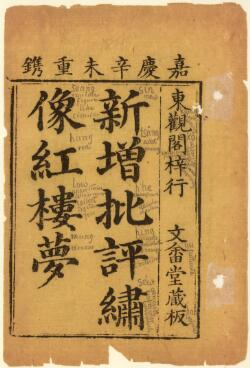 嘉慶辛未重鐫
東觀閣梓行
文畬堂藏板
新增批評繡
像紅樓夢
sin
hung
low